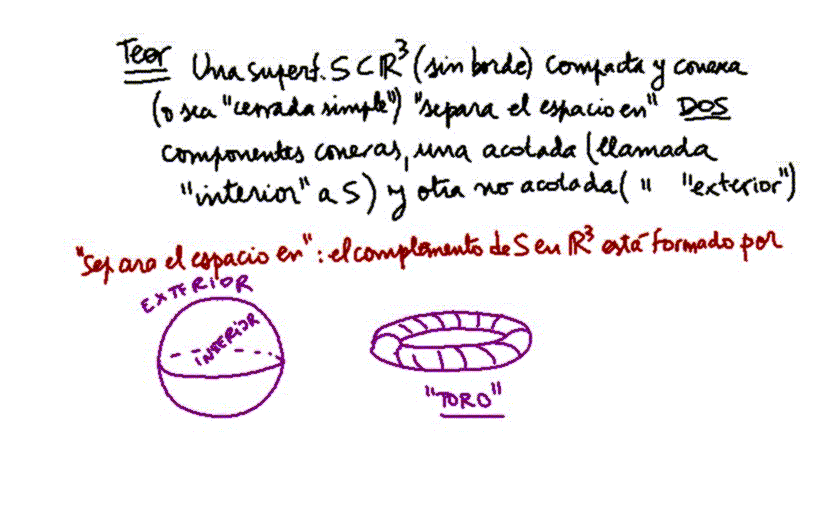 Teor Una superf. S ⊂ ℝ³ (sin borde) compacta y conexa
(o sea "cerrada simple") "separa el espacio en" DOS
componentes conexas, una acotada (llamada
"interior" a S) y otra no acotada ( " "exterior")
"separa el espacio en": el complemento de S en ℝ³ está formado por
EXTERIOR
INTERIOR
"TORO"